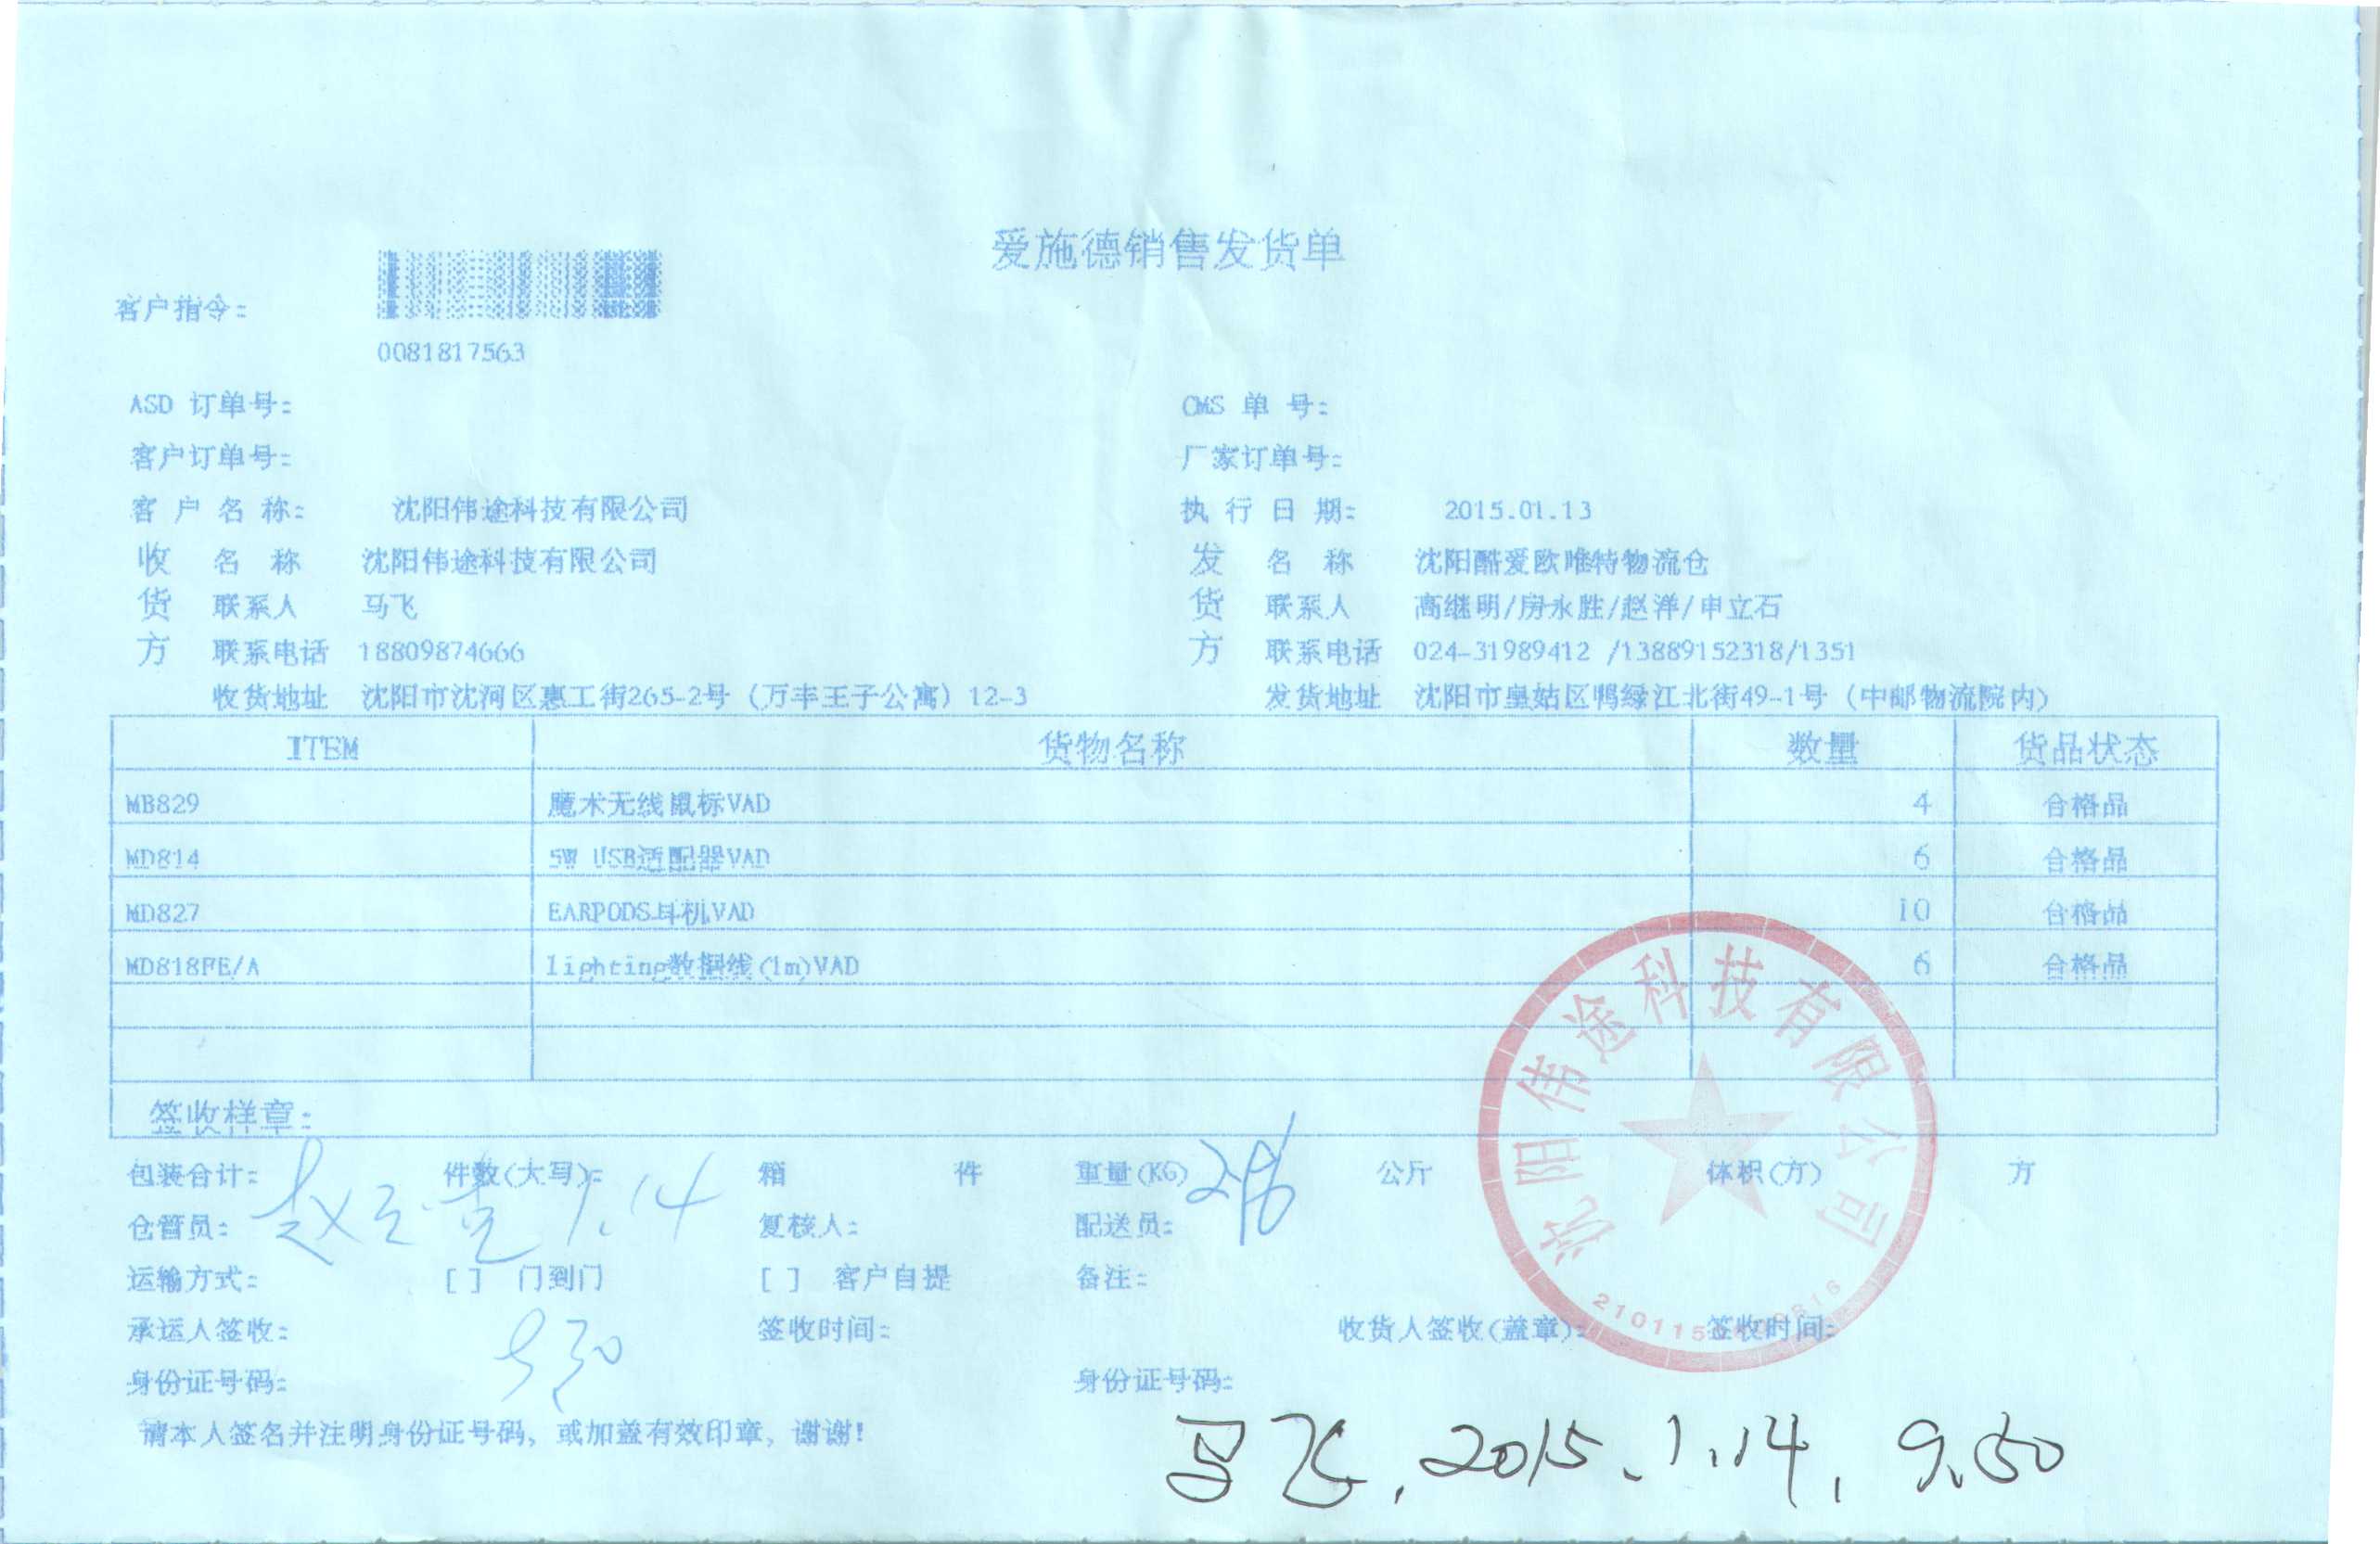 爱施德销售发货单
客户指令:
0081817563
ASD 订单号: CMS 单 号:
客户订单号: 厂家订单号:
客 户 名 称: 沈阳伟途科技有限公司 执 行 日 期: 2015.01.13
收 名 称 沈阳伟途科技有限公司 发 名 称 沈阳酷爱欧唯特物流仓
货 联系人 马飞 货 联系人 高继明/房永胜/赵洋/申立石
方 联系电话 18809874666 方 联系电话 024-31989412 /13889152318/1351
收货地址 沈阳市沈河区惠工街265-2号（万丰王子公寓）12-3 发货地址 沈阳市皇姑区鸭绿江北街49-1号（中邮物流院内）
ITEM 货物名称 数量 货品状态
MB829 魔术无线鼠标VAD 4 合格品
MD814 5W USB适配器VAD 6 合格品
MD827 EARPODS耳机VAD 10 合格品
MD818FE/A lighting数据线(1m)VAD 6 合格品
沈阳伟途科技有限公司
签收样章:
包装合计: 件数(大写): 箱 件 重量(KG) 公斤 体积(方) 方
仓管员: 1.14 复核人: 配送员:
运输方式: [ ] 门到门 [ ] 客户自提 备注:
承运人签收: 签收时间: 收货人签收(盖章): 签收时间:
9.50
身份证号码: 身份证号码:
请本人签名并注明身份证号码，或加盖有效印章，谢谢!
马飞. 2015.1.14. 9.50